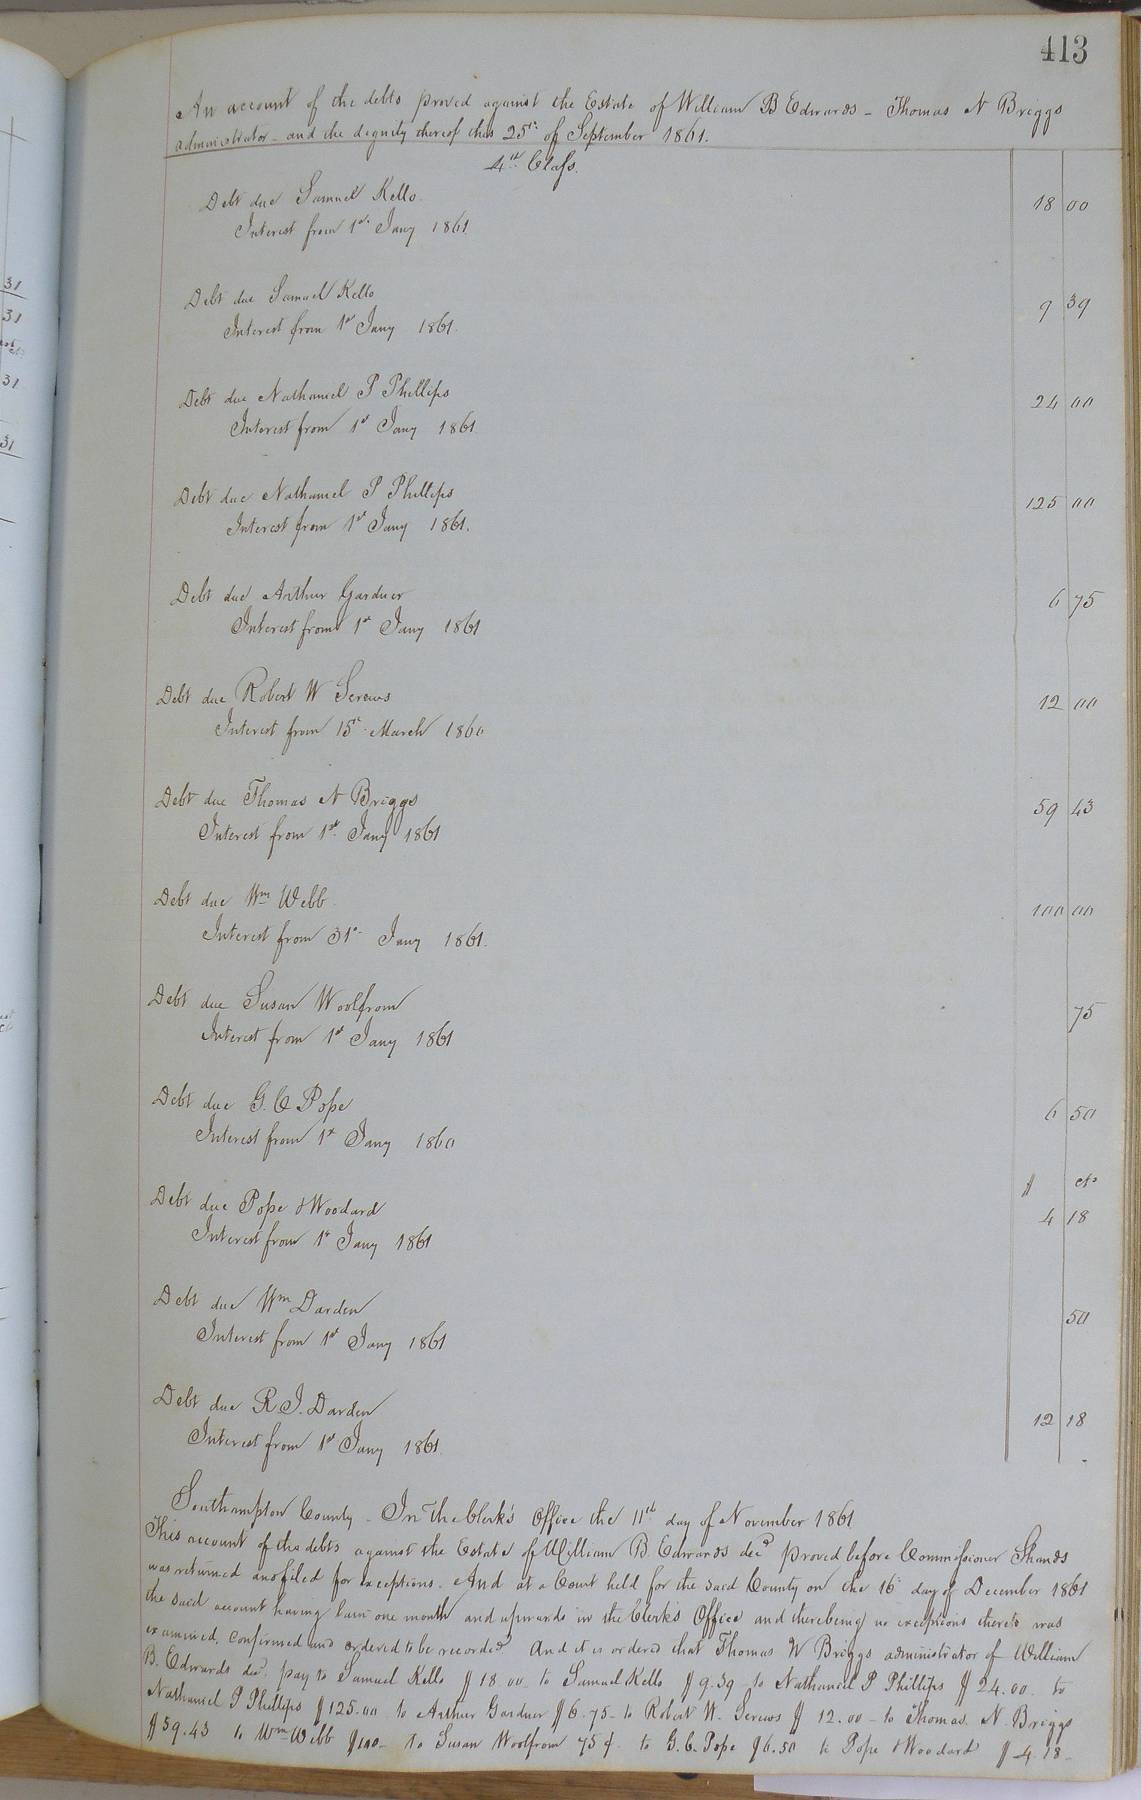 413
An account of the debts proved against the Estate of William B Edwards - Thomas N Briggs
administrator - and the dignity thereof this 25th of September 1861.
4th Class.
Debt due Samuel Kello 18 00
Interest from 1st Jany 1861
Debt due Samuel Kello 9 39
Interest from 1st Jany 1861.
Debt due Nathaniel P Phillips 24 00
Interest from 1st Jany 1861
Debt due Nathaniel P Phillips 125 00
Interest from 1st Jany 1861.
Debt due Arthur Gardner 6 75
Interest from 1st Jany 1861
Debt due Robert W Screws 12 00
Interest from 15th March 1860
Debt due Thomas N Briggs 59 43
Interest from 1st Jany 1861
Debt due Wm Webb 100 00
Interest from 31st Jany 1861.
Debt due Susan Woolfrom 75
Interest from 1st Jany 1861
Debt due G. C Pope 6 50
Interest from 1st Jany 1860
$ cts
Debt due Pope & Woodard 4 18
Interest from 1st Jany 1861
Debt due Wm Darden 50
Interest from 1st Jany 1861
Debt due R. J. Darden 12 18
Interest from 1st Jany 1861
Southampton County - In the Clerk's Office the 11th day of November 1861
This account of the debts against the Estate of William B. Edwards decd proved before Commissioner Shands
was returned and filed for exceptions. And at a Court held for the said County on the 16th day of December 1861
the said account having lain one month and upwards in the Clerk's Office and there being no exceptions thereto was
examined, confirmed and ordered to be recorded and it is ordered that Thomas N Briggs administrator of William
B. Edwards decd. pay to Samuel Kello $18.00 to Samuel Kello $9.39 to Nathaniel P Phillips $24.00 to
Nathaniel P Phillips $125.00 to Arthur Gardner $6.75 - to Robert W. Screws $12.00 - to Thomas. N. Briggs
$59.43 to Wm Webb $100 - to Susan Woolfrom 75¢ to G. C. Pope $6.50 to Pope & Woodard $4.18 -